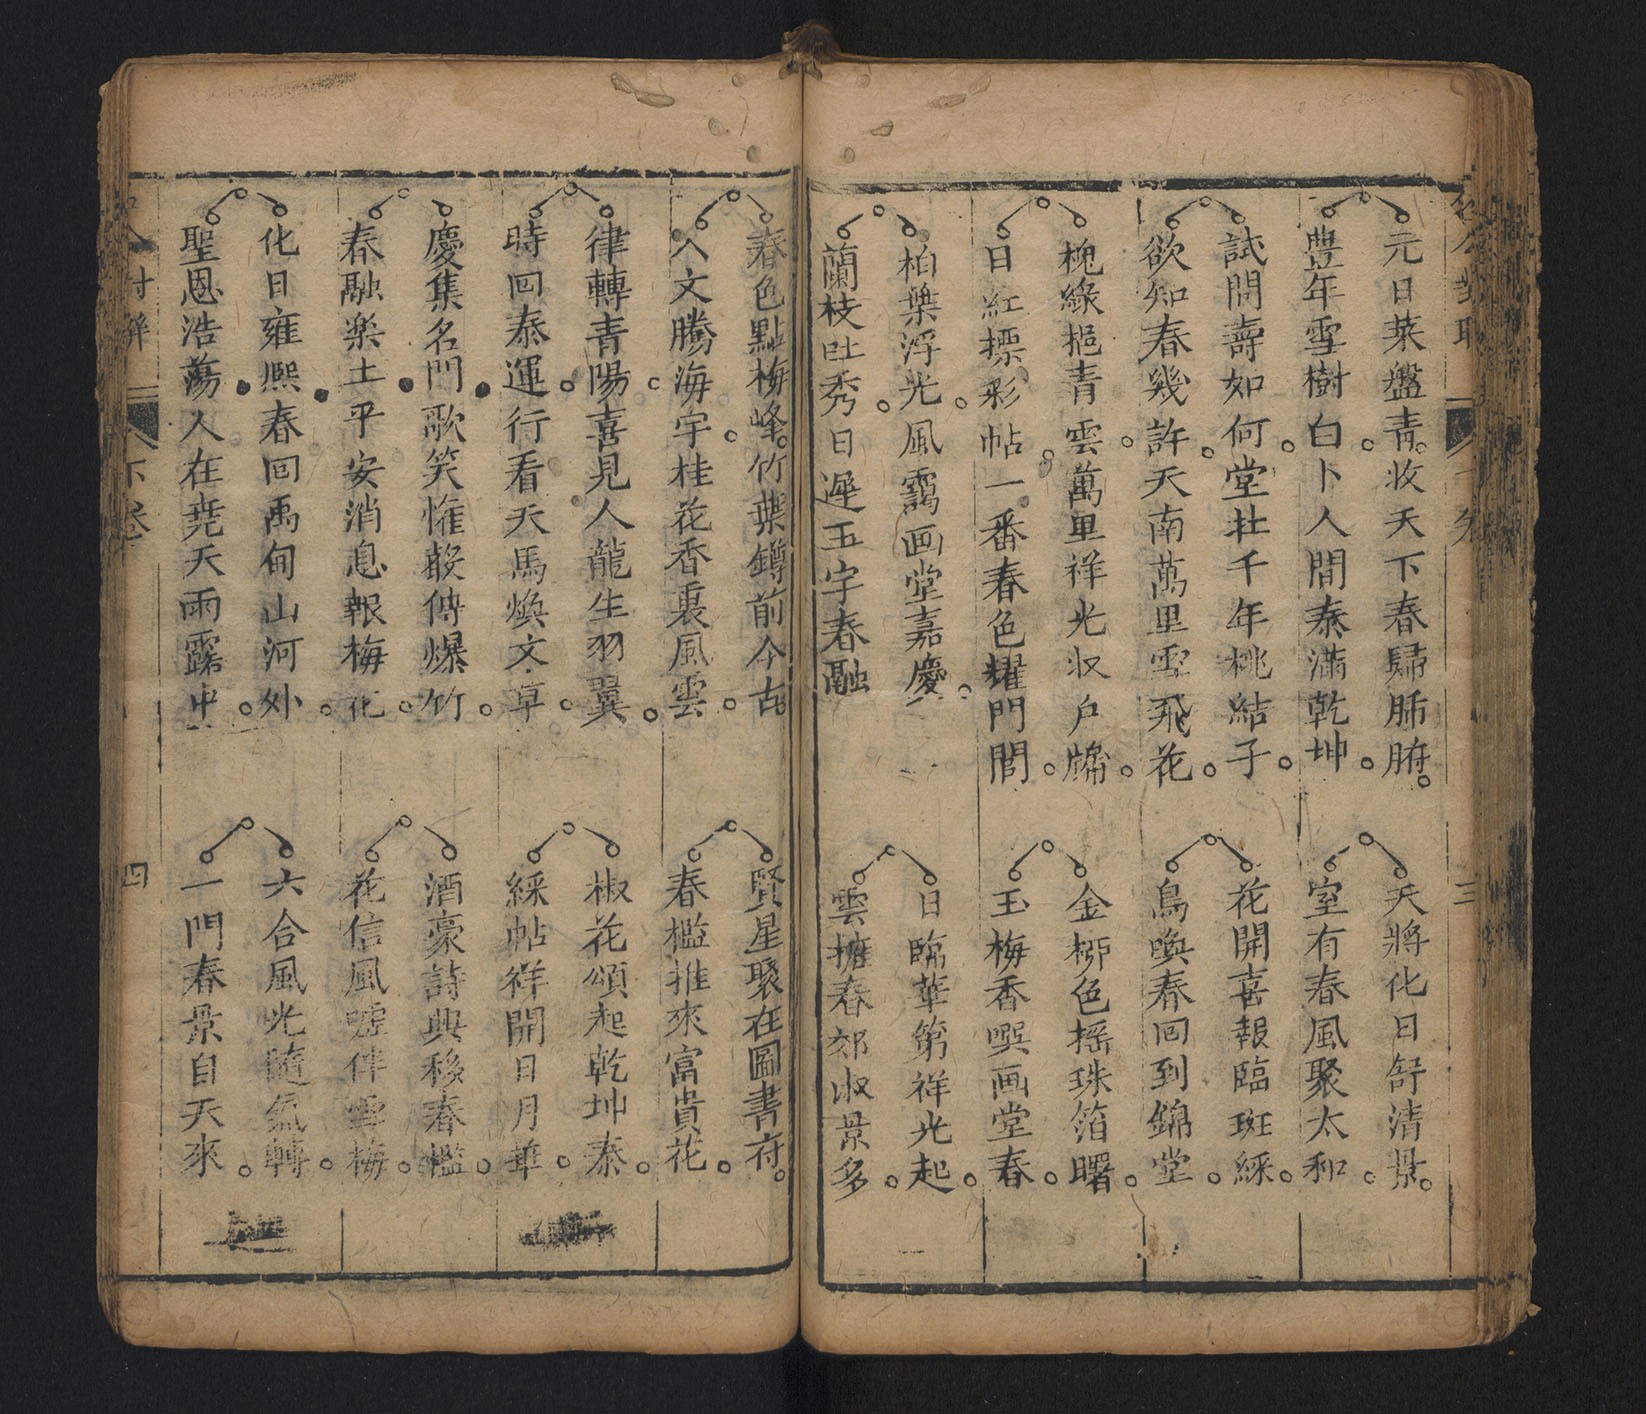 元日菜盤青收天下春歸肺腑
豊年雪樹白卜人間泰滿乾坤
試問壽如何堂牡千年桃結子
欲知春幾許天南萬里雲飛花
槐綠挹青雲萬里祥光収戶牖
日紅摽彩帖一番春色耀門閭
柏樂浮光風靄画堂嘉慶
蘭枝吐秀日遲玉宇春融
天將化日舒清景
室有春風聚太和
花開喜報臨斑綵
鳥喚春回到錦堂
金柳色搖珠箔曙
玉梅香噀画堂春
日臨華第祥光起
雲擁春郊淑景多
三
春色點梅峰竹葉罇前今古
人文騰海宇桂花香裏風雲
律轉青陽喜見人龍生羽翼
時回泰運行看天馬煥文章
慶集名門歌笑惟敲傳爆竹
春融楽土平安消息報梅花
化日雍熙春回禹甸山河外
聖恩浩蕩人在尭天雨露中
賢星聚在圖書府
春檻推來富貴花
椒花頌起乾坤泰
綵帖祥開日月華
酒豪詩興移春檻
花信風噓伴雪梅
六合風光隨氣轉
一門春景自天來
下卷
四